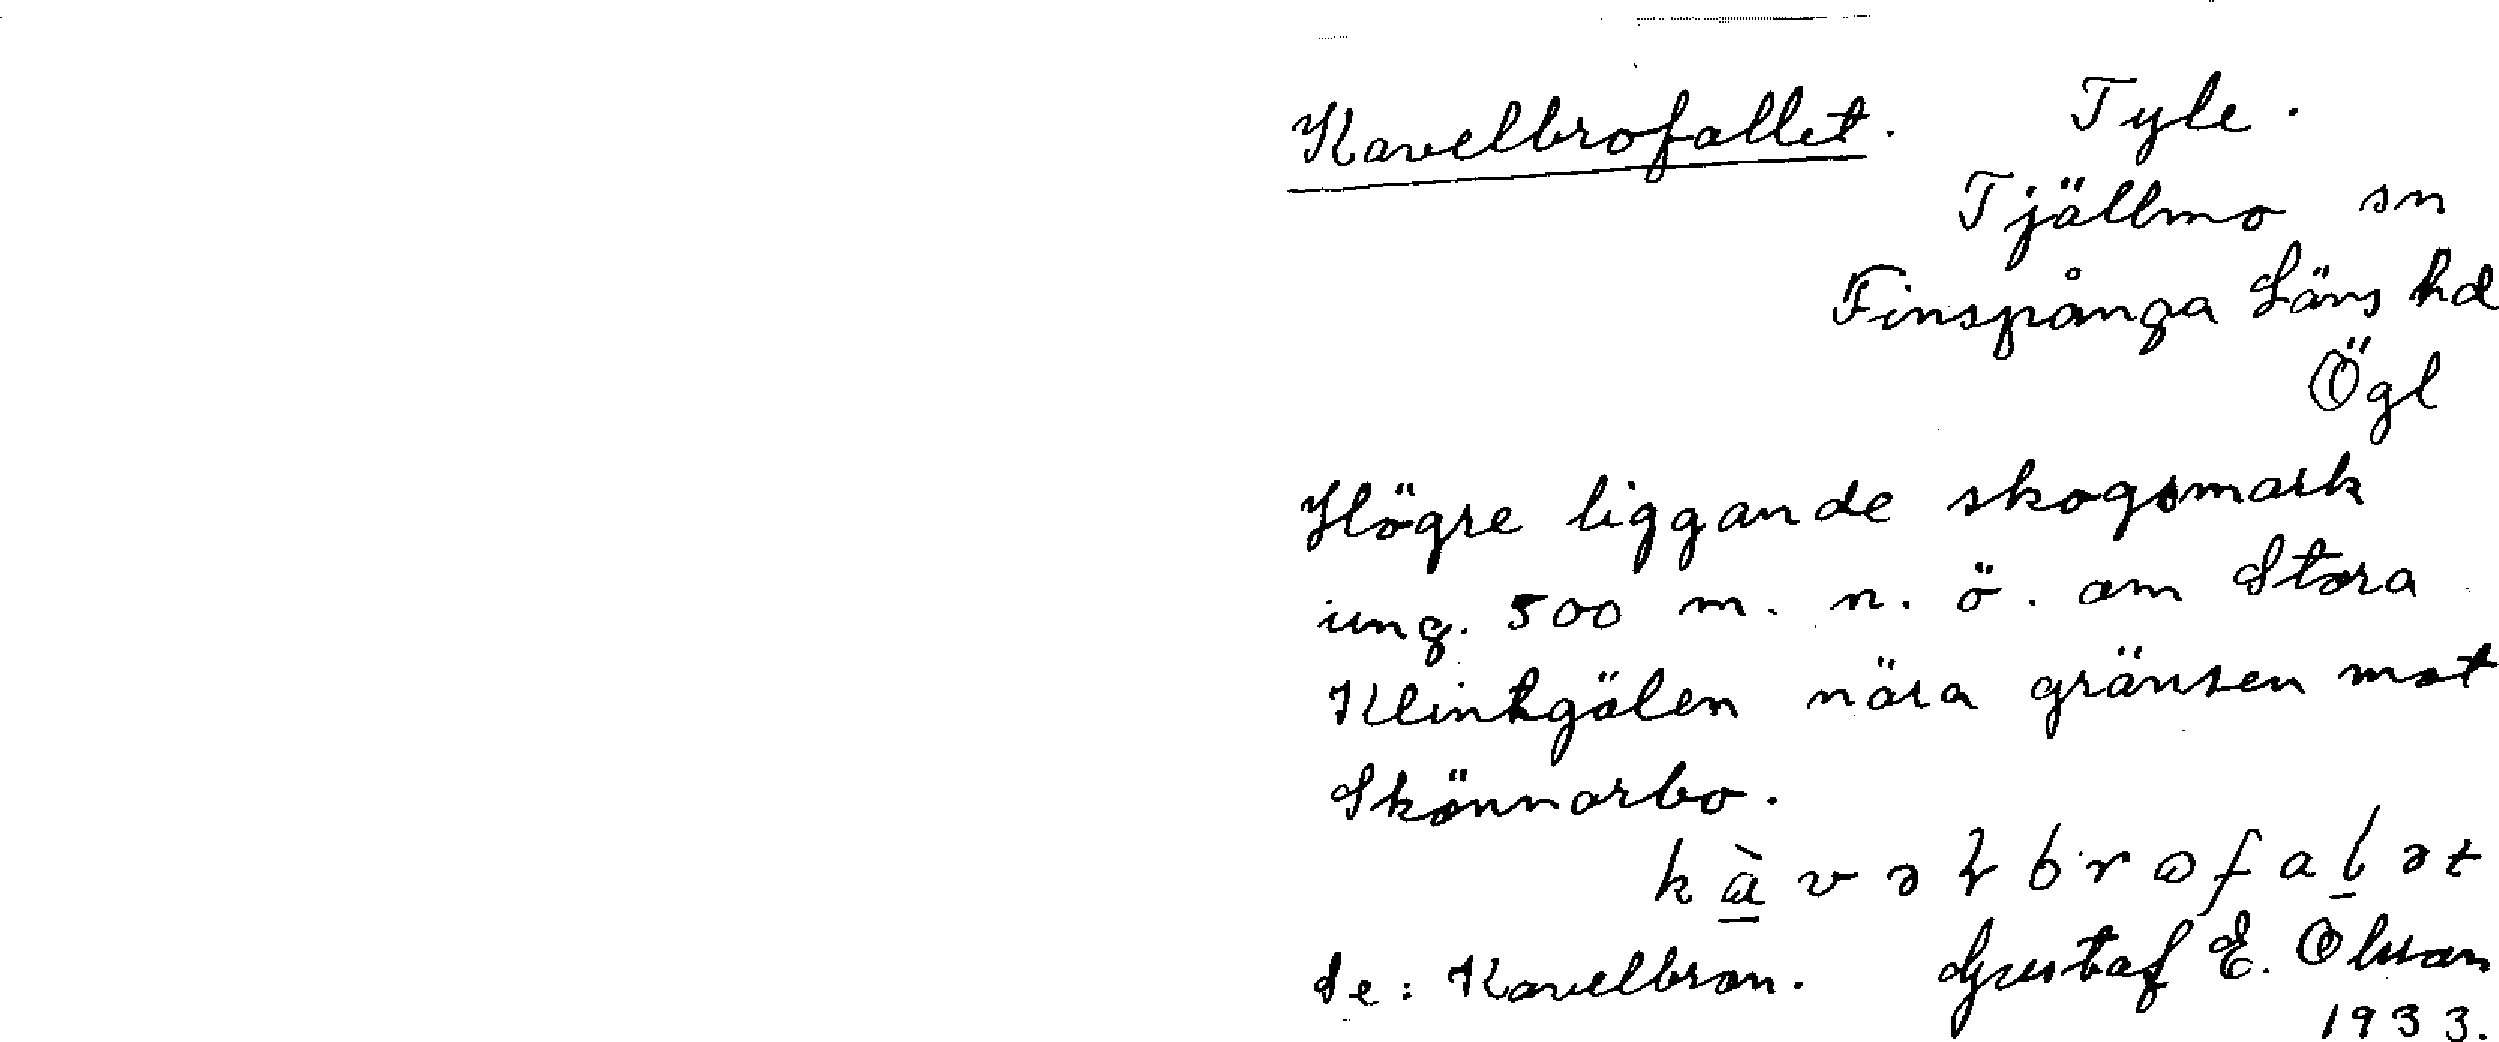 Kavelbrofallet. Tyle.
Tjällmo sn
Finspånga Läns hd
Ögl
Högre liggande skogsmark
ung. 500 m. n. ö. om Stora
Klintgölen nära gränsen mot
Skönnarbo.
Se: Kavelbron. Gustaf E. Olsson
1933.